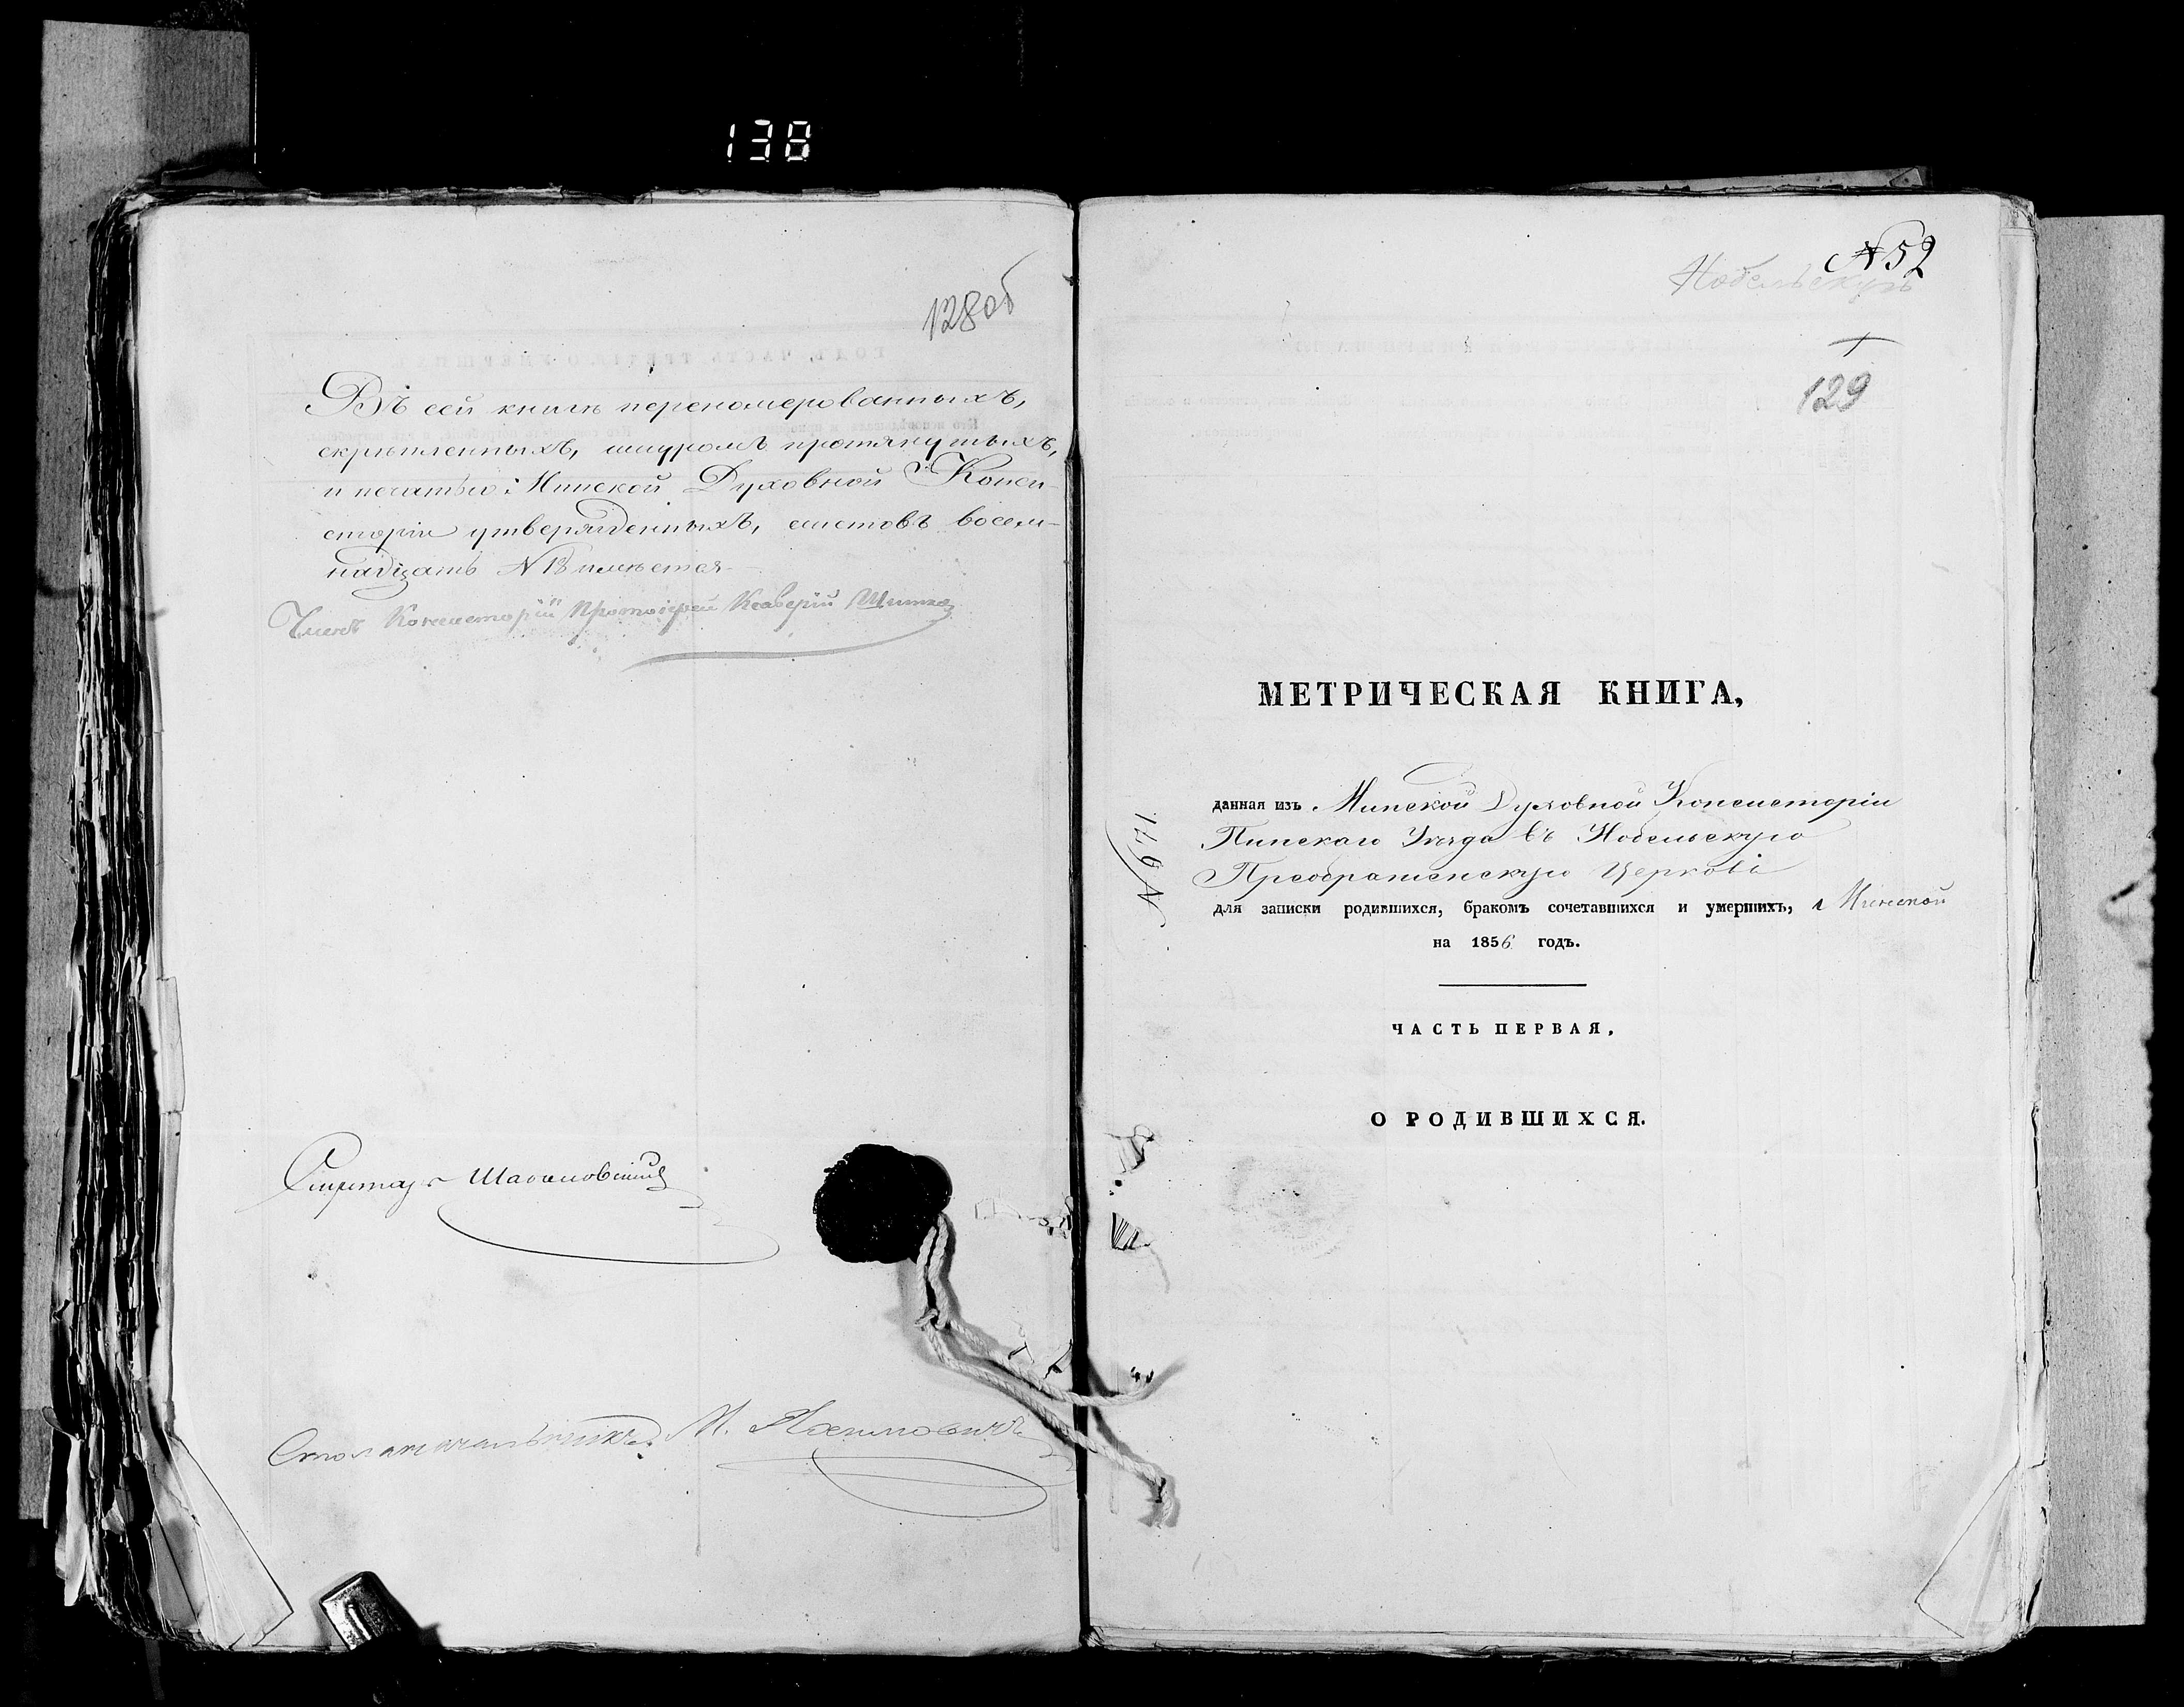 138
128об
Въ сей книгѣ перепомерованныхъ,
скрѣпленныхъ, шнуромъ протянутыхъ,
и печатью Минской Духовной Конси-
сторіи утвержденныхъ, листовъ восем-
надцать N 18 имѣется
Членъ Консисторіи Протоіерей Ксаверій
Секретарь
Столоначальникъ М.
N 52
Нобельскую
129
МЕТРИЧЕСКАЯ КНИГА,
данная изъ Минской Духовной Консисторіи
Пинскаго Уѣзда въ Нобельскую
Преображенскую Церковь
для записки родившихся, бракомъ сочетавшихся и умершихъ,
на 1856 годъ.
ЧАСТЬ ПЕРВАЯ,
О РОДИВШИХСЯ.